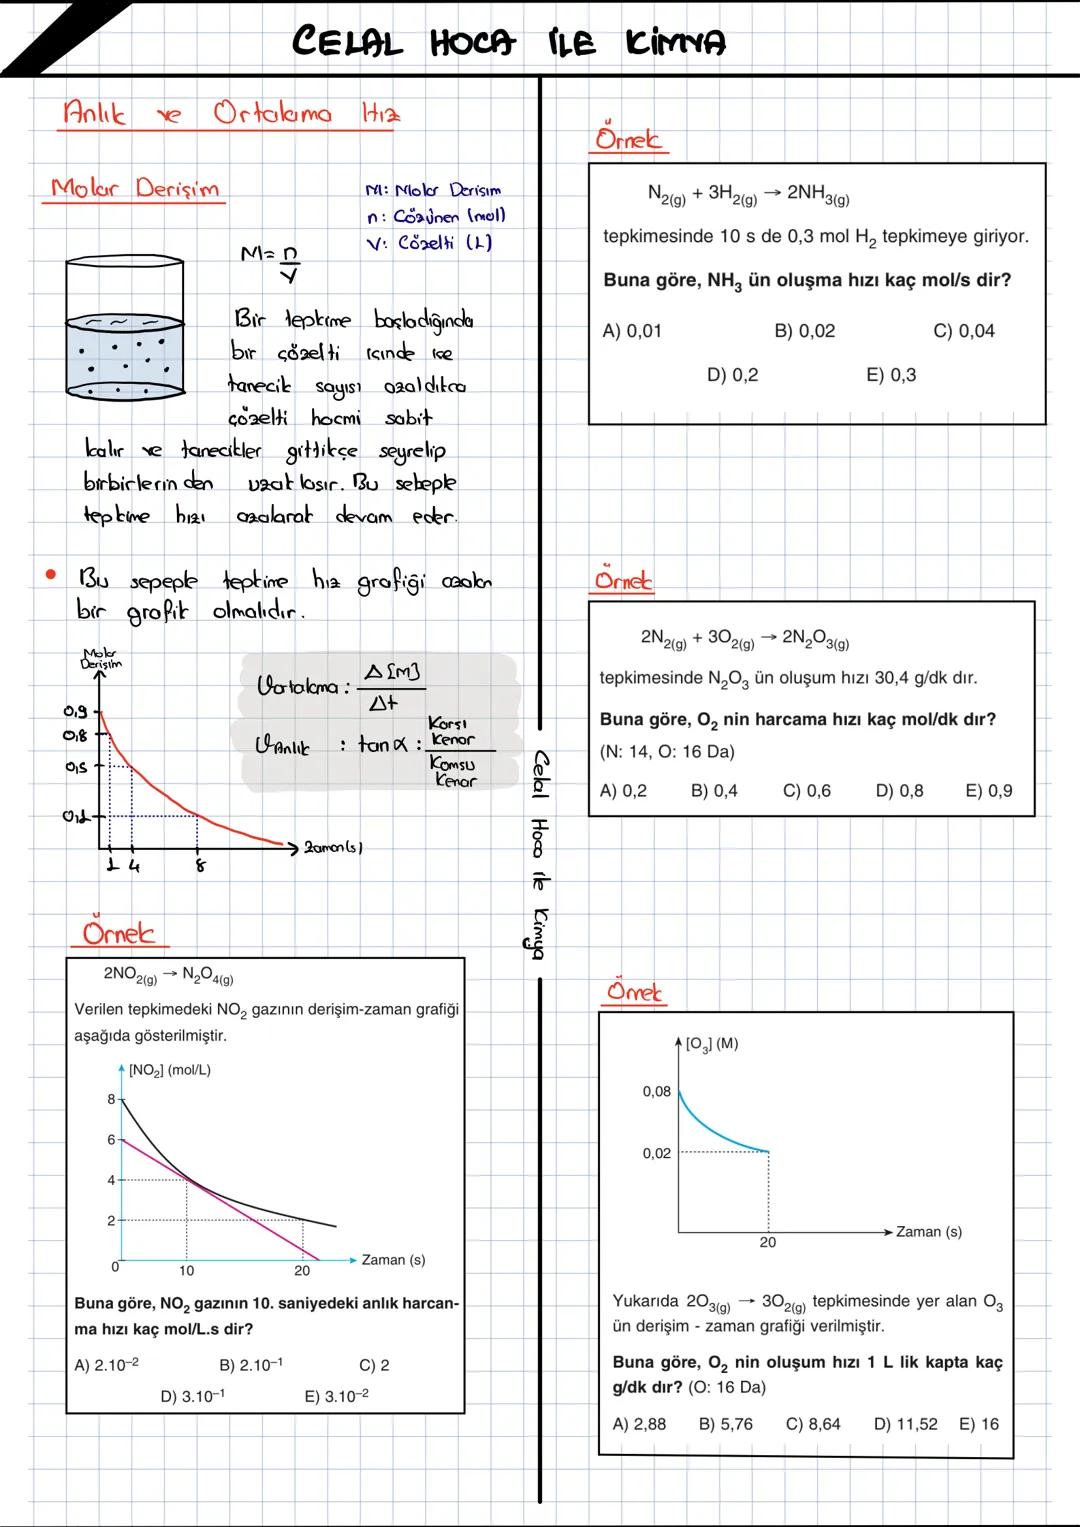 CELAL HOCA İLE KİMYA
Anlık ve Ortalama Hız
Molar Derişim
M: Molar Derişim
n: Çözünen (mol)
V: Çözelti (L)
M= n
V
Bir tepkime başladığında
bir çözelti içinde ise
tanecik sayısı azaldıkca
çözelti hacmi sabit
kalır ve tanecikler gittikçe seyrelip
birbirlerin den uzaklasır. Bu sebeple
tepkime hızı azalarak devam eder.
• Bu sepeple tepkime hız grafiği azalan
bir grafik olmalıdır.
Molar
Derişim
0,9
0,8
0,5
0,1
1 4 8
Zaman(s)
Vortalama : Δ[M]
Δt
VAnlık : tan α : Karsı Kenar
Komsu Kenar
Örnek
2NO2(g) → N2O4(g)
Verilen tepkimedeki NO2 gazının derişim-zaman grafiği
aşağıda gösterilmiştir.
[NO2] (mol/L)
8
6
4
2
0 10 20
Zaman (s)
Buna göre, NO2 gazının 10. saniyedeki anlık harcan-
ma hızı kaç mol/L.s dir?
A) 2.10⁻² B) 2.10⁻¹ C) 2
D) 3.10⁻¹ E) 3.10⁻²
Celal Hoca ile Kimya
Örnek
N2(g) + 3H2(g) → 2NH3(g)
tepkimesinde 10 s de 0,3 mol H2 tepkimeye giriyor.
Buna göre, NH3 ün oluşma hızı kaç mol/s dir?
A) 0,01 B) 0,02 C) 0,04
D) 0,2 E) 0,3
Örnek
2N2(g) + 3O2(g) → 2N2O3(g)
tepkimesinde N2O3 ün oluşum hızı 30,4 g/dk dır.
Buna göre, O2 nin harcama hızı kaç mol/dk dır?
(N: 14, O: 16 Da)
A) 0,2 B) 0,4 C) 0,6 D) 0,8 E) 0,9
Örnek
[O3] (M)
0,08
0,02
20
Zaman (s)
Yukarıda 2O3(g) → 3O2(g) tepkimesinde yer alan O3
ün derişim - zaman grafiği verilmiştir.
Buna göre, O2 nin oluşum hızı 1 L lik kapta kaç
g/dk dır? (O: 16 Da)
A) 2,88 B) 5,76 C) 8,64 D) 11,52 E) 16